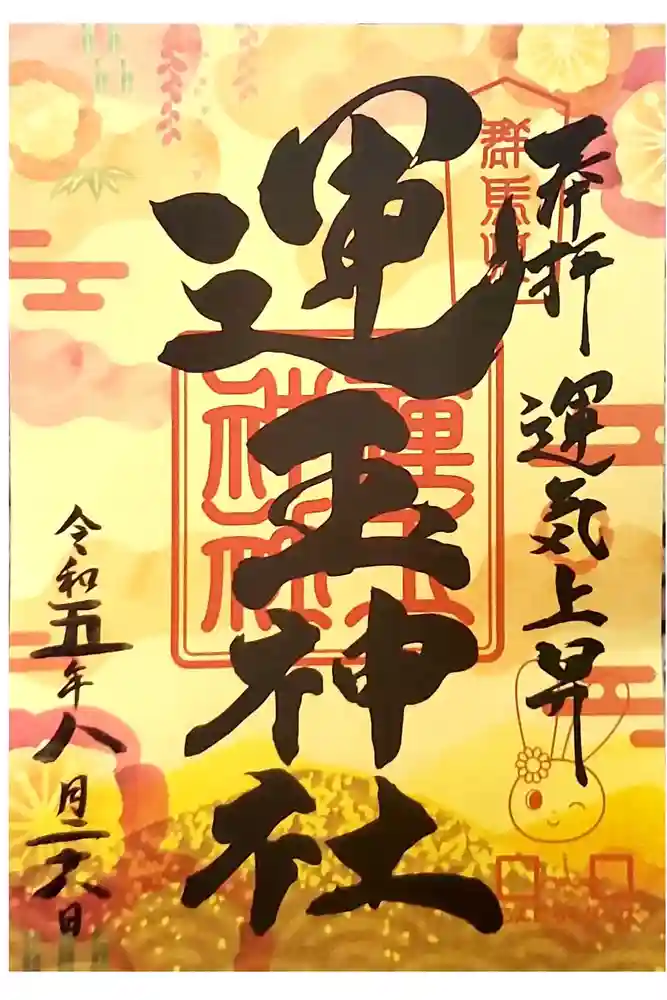 奉拝 運気上昇
群馬
運玉神社
令和五年八月二十六日